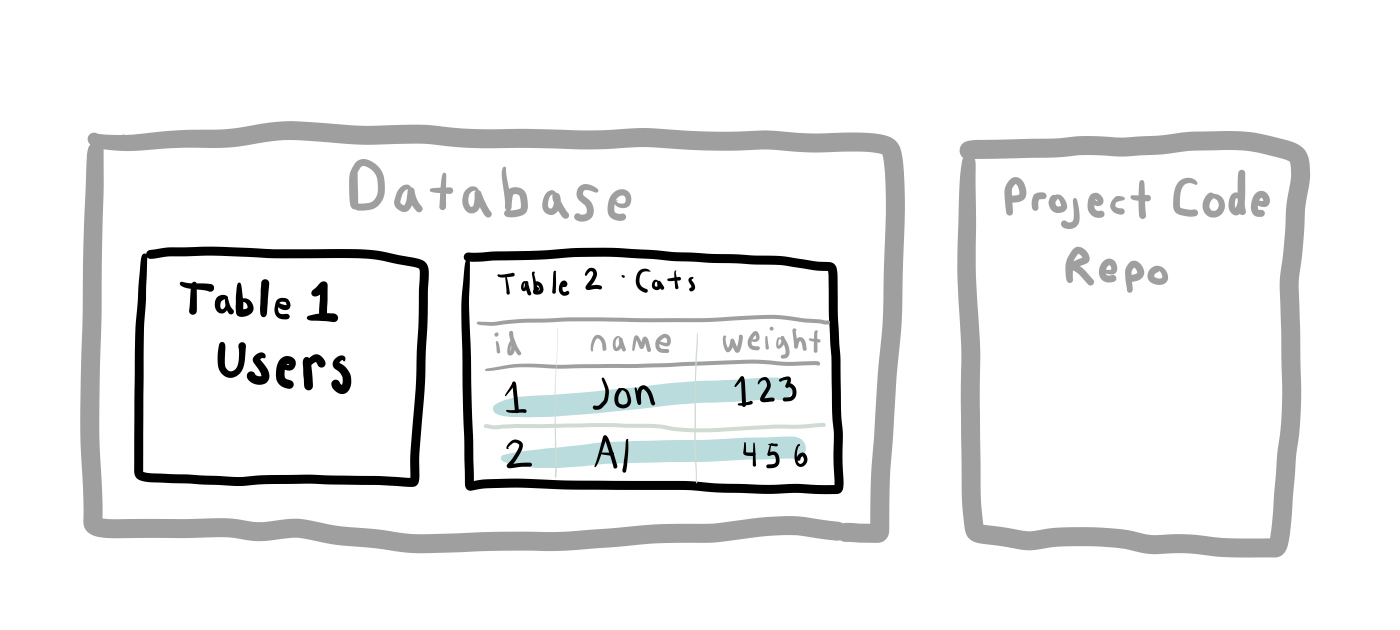 Database
Table 1
Users
Table 2 · Cats
id name weight
1 Jon 123
2 Al 456
Project Code
Repo